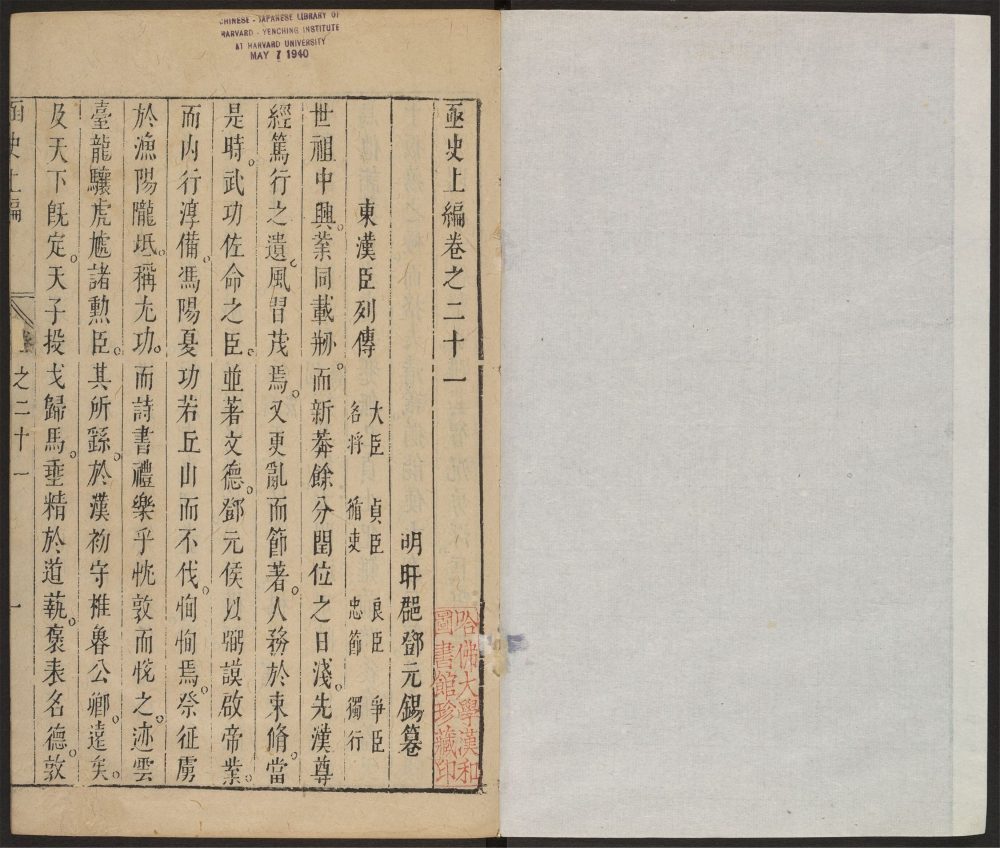 CHINESE - JAPANESE LIBRARY OF
HARVARD - YENCHING INSTITUTE
AT HARVARD UNIVERSITY
MAY 7 1940
函史上編卷之二十一
明旴郡鄧元錫纂
東漢臣列傳 大臣 貞臣 良臣 爭臣
名將 循吏 忠節 獨行
世祖中興業同載剏而新莽餘分閏位之日淺先漢尊
經篤行之遺風習茂焉又更亂而節著人務於束脩當
是時武功佐命之臣並著文德鄧元侯以弼謨啟帝業
而内行淳備馮陽夏功若丘山而不伐恂恂焉祭征虜
於漁陽隴坻稱尤功而詩書禮樂乎忱敦而悅之迹雲
臺龍驤虎䖍諸勲臣其所繇於漢初守椎魯公卿遠矣
及天下旣定天子投戈歸馬垂精於道蓺襃表名德敦
函史上編
之二十一
一
哈佛大學漢和
圖書館珍藏印